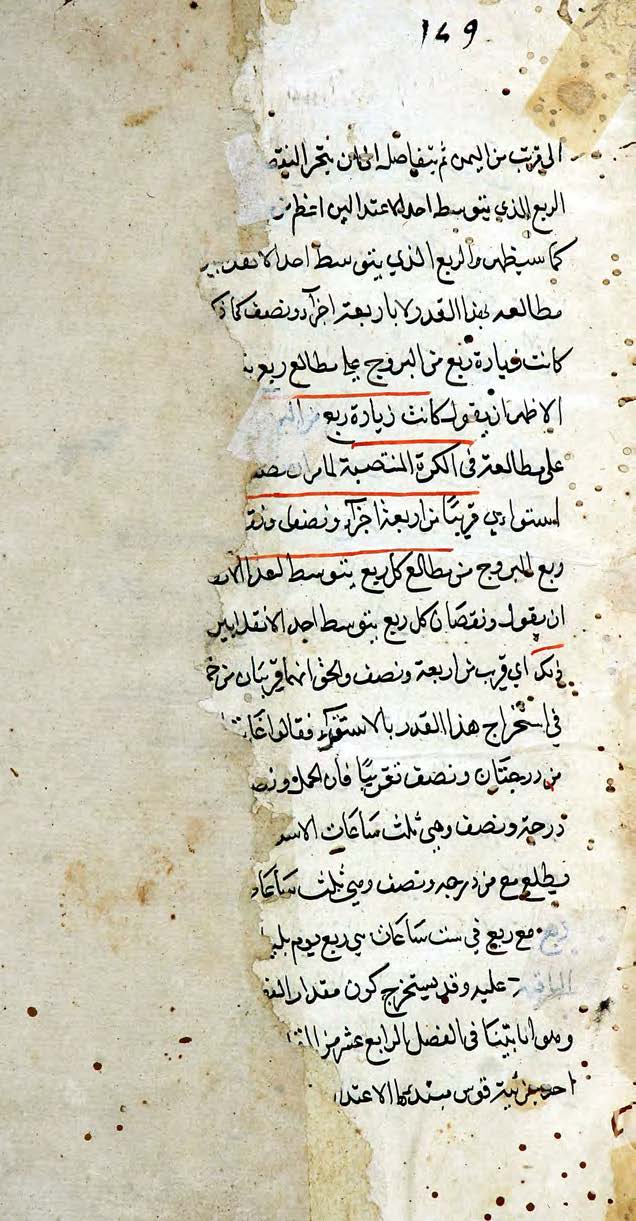 149
الى قريب من اليمن ثم يتفاضله الى ان ينجر النقص
الربع الذي يتوسط احد الاعتدالين اعظم من
كما سيظهر والربع الذي يتوسط احد الانقلابين
مطالعه بهذا القدر لا باربعة اجزآء ونصف كما ذكر
كانت زيادة ربع من البروج على مطالع ربع
الاظهر ان يقول كانت زيادة ربع من البر
على مطالعه في الكرة المنتصبة لما مر ان نصف
استواءى قريبًا من اربعة اجزآء ونصف ونقـ
ربع البروج من مطالع كل ربع يتوسط احد الانـ
ان يقول ونقصان كل ربع يتوسط احد الانقلابين
ذلك اي قريب من اربعة ونصف والحق انهما قريبان من خمـ
في استخراج هذا القدر بالاستقرآء فقالوا غاية
من درجتان ونصف تقريبًا فان الحمل ونصـ
درجة ونصف وهي ثلث ساعات الاسد
فيطلع مع من درجة ونصف وهي ثلث ساعات
ربع مع ربع في ست ساعات هي ربع يوم بليـ
الباقية عليه وقد يستخرج كون مقدار الفضـ
وهو انا بيّنا في الفصل الرابع عشر من المقا
احد من ية قوس مبدؤها الاعتدا